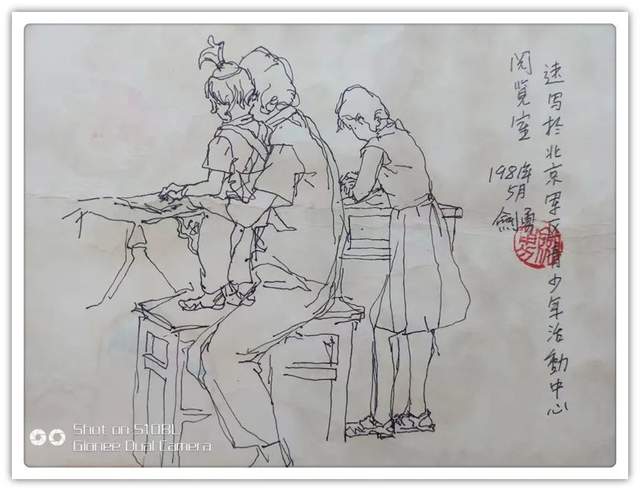 速写於北京军区青少年活動中心
阅览室
1981年
5月
劍勇
Shot on S10BL
Gionee Dual Camera